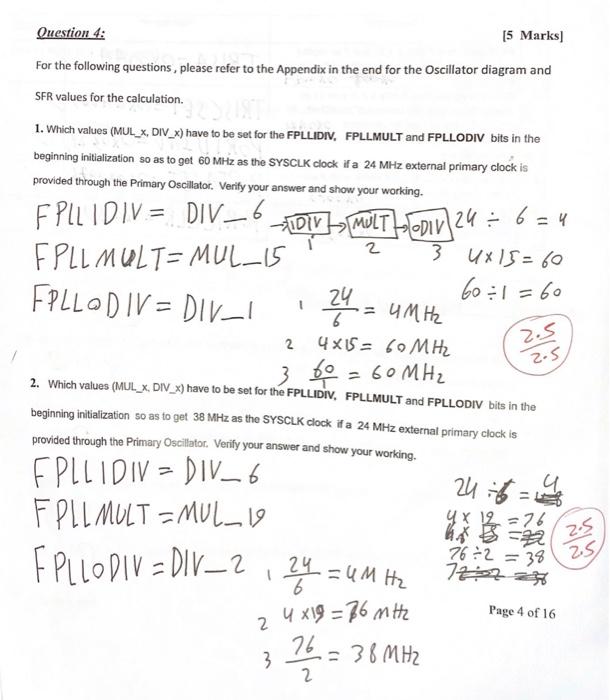 Question 4:
[5 Marks]
For the following questions, please refer to the Appendix in the end for the Oscillator diagram and
SFR values for the calculation.
1. Which values (MUL_x, DIV_x) have to be set for the FPLLIDIV, FPLLMULT and FPLLODIV bits in the
beginning initialization so as to get 60 MHz as the SYSCLK clock if a 24 MHz external primary clock is
provided through the Primary Oscillator. Verify your answer and show your working.
FPLLIDIV = DIV_6
→ IDIV → MULT → ODIV
1 2 3
24 ÷ 6 = 4
FPLLMULT = MUL_15
4x15 = 60
FPLLODIV = DIV_1
60 ÷ 1 = 60
1 24/6 = 4MHz
2 4x15 = 60MHz
3 60/1 = 60MHz
2.5/2.5
2. Which values (MUL_x, DIV_x) have to be set for the FPLLIDIV, FPLLMULT and FPLLODIV bits in the
beginning initialization so as to get 38 MHz as the SYSCLK clock if a 24 MHz external primary clock is
provided through the Primary Oscillator. Verify your answer and show your working.
FPLLIDIV = DIV_6
24 ÷ 6 = 4
FPLLMULT = MUL_19
4 x 19 = 76
76 ÷ 2 = 38
2.5/2.5
FPLLODIV = DIV_2
1 24/6 = 4MHz
2 4x19 = 76 MHz
3 76/2 = 38MHz
Page 4 of 16